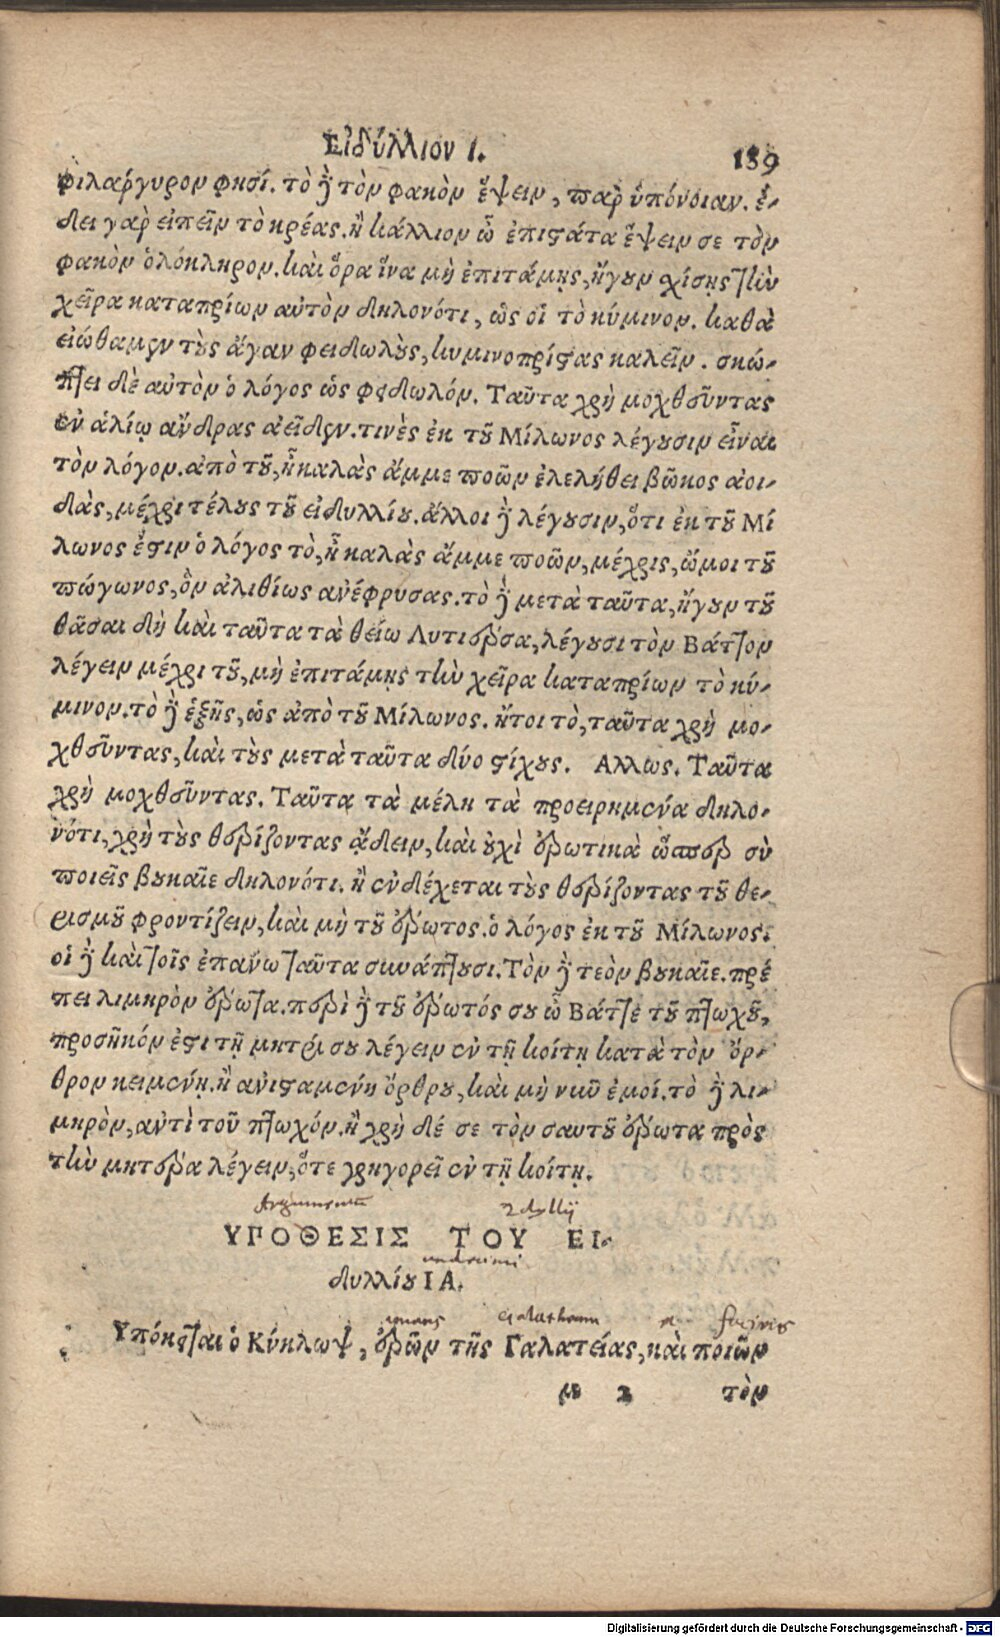 Εἰδύλλιον Ι. 189
φιλάργυρον φησί. τὸ ἢ τὸν φακὸν ἕψειν, παρ ὑπόνοιαν. ἔ-
δει γαρ εἰπεῖν τὸ κρέας. ἢ κάλλιον ὦ ἐπιστάτα ἕψειν σε τὸν
φακὸν ὁλόκληρον. καὶ ὅρα ἵνα μὴ ἐπιτάμῃς, ἤγουν σχίσῃς τὴν
χεῖρα καταπρίων αὐτὸν δηλονότι, ὡς οἱ τὸ κύμινον. καθὰ
εἰώθαμεν τοὺς ἄγαν φειδωλοὺς, κυμινοπρίστας καλεῖν. σκώ-
πτει δὲ αὐτὸν ὁ λόγος ὡς φειδωλόν. Ταῦτα χρὴ μοχθεῦντας
ἐν ἁλίῳ ἄνδρας ἀείδεν. τινὲς ἐκ τοῦ Μίλωνος λέγουσιν εἶναι
τὸν λόγον. ἀπὸ τοῦ, ἦ καλὰς ἄμμε ποῶν ἐλελήθει βῶκος ἀοι-
δὰς, μέχρι τέλους τοῦ εἰδυλλίου. ἄλλοι δὲ λέγουσιν, ὅτι ἐκ τοῦ Μί
λωνος ἐστιν ὁ λόγος τὸ, ἦ καλὰς ἄμμε ποῶν, μέχρις, ὤμοι τοῦ
πώγωνος, ὃν ἀλιθίως ἀνέφρυσας. τὸ δὲ μετὰ ταῦτα, ἤγουν τοῦ
θᾶσαι δὴ καὶ ταῦτα τὰ θείω Λυτιέρσα, λέγουσι τὸν Βάττον
λέγειν μέχρι τοῦ, μὴ ἐπιτάμῃς τὴν χεῖρα καταπρίων τὸ κύ-
μινον. τὸ δὲ ἑξῆς, ὡς ἀπὸ τοῦ Μίλωνος. ἤτοι τὸ, ταῦτα χρὴ μο-
χθεῦντας, καὶ τοὺς μετὰ ταῦτα δύο στίχους. Αλλως. Ταῦτα
χρὴ μοχθεῦντας. Ταῦτα τὰ μέλη τὰ προειρημένα δηλο-
νότι, χρὴ τοὺς θερίζοντας ᾄδειν, καὶ οὐχὶ ἐρωτικὰ ὥσπερ σὺ
ποιεῖς βουκαῖε δηλονότι. ἢ ἐνδέχεται τοὺς θερίζοντας τοῦ θε-
ρισμοῦ φροντίζειν, καὶ μὴ τοῦ ἔρωτος. ὁ λόγος ἐκ τοῦ Μίλωνος.
οἱ δὲ καὶ τοῖς ἐπάνω ταῦτα συνάπτουσι. Τὸν δὲ τεὸν βουκαῖε. πρέ
πει λιμηρὸν ἔρωτα. περὶ δὲ τοῦ ἔρωτός σου ὦ Βάττε τοῦ πτωχοῦ,
προσῆκόν ἐστι τῇ μητρί σου λέγειν ἐν τῇ κοίτῃ κατὰ τὸν ὄρ-
θρον κειμένῃ. ἢ ἀνισταμένῃ ὄρθρου, καὶ μὴ νῦν ἐμοί. τὸ δὲ λι-
μηρὸν, αντὶ τοῦ πτωχόν. ἢ χρὴ δέ σε τὸν σαυτοῦ ἔρωτα πρὸς
τὴν μητέρα λέγειν, ὅτε γρηγορεῖ ἐν τῇ κοίτῃ.
Argumentum Idyllij
ΥΠΟΘΕΣΙΣ ΤΟΥ ΕΙ-
undecimi
δυλλίου ΙΑ.
amans Galatheam et faciens
Υπόκειται ὁ Κύκλωψ, ἐρῶν τῆς Γαλατείας, καὶ ποιῶν
μ 2 τὸν
Digitalisierung gefördert durch die Deutsche Forschungsgemeinschaft - DFG